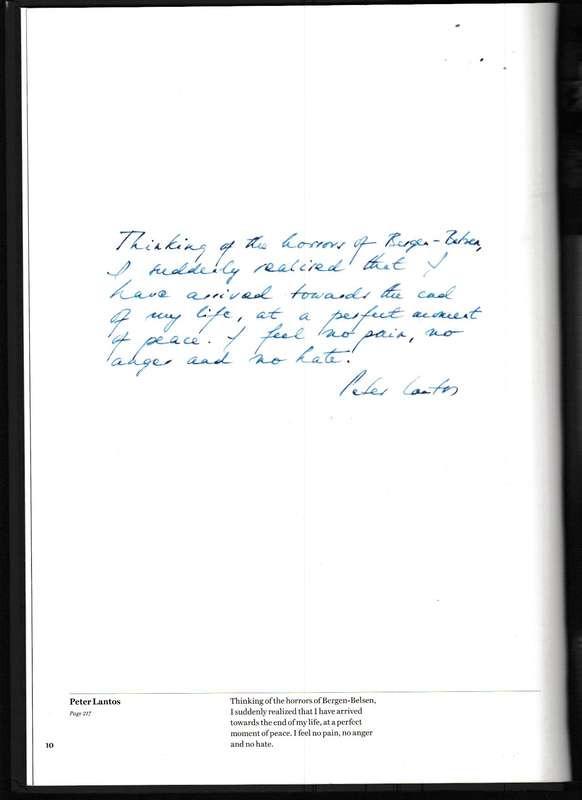 Thinking of the horrors of Bergen-Belsen,
I suddenly realised that I
have arrived towards the end
of my life, at a perfect moment
of peace. I feel no pain, no
anger and no hate.
Peter Lantos
Peter Lantos
Page 217
Thinking of the horrors of Bergen-Belsen,
I suddenly realized that I have arrived
towards the end of my life, at a perfect
moment of peace. I feel no pain, no anger
and no hate.
10